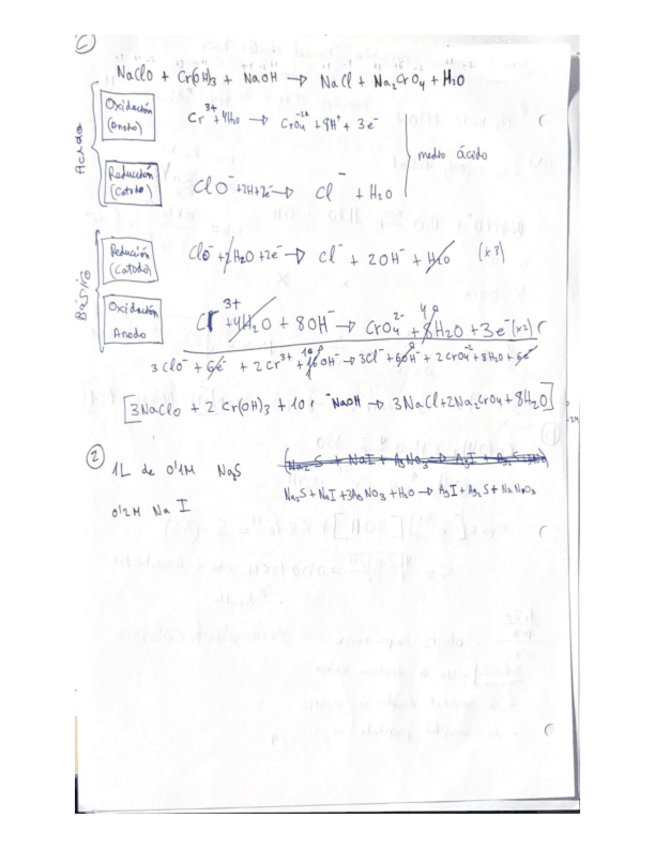 c)
NaClO + Cr(OH)3 + NaOH → NaCl + Na2CrO4 + H2O
Acido
Oxidación (anodo)
Cr 3+ + 4H2O → CrO4 -2 + 8H+ + 3e-
medio ácido
Reducción (Catodo)
ClO- + 2H + 2e- → Cl- + H2O
Básico
Reducción (Catodo)
ClO- + H2O + 2e- → Cl- + 2OH- + H2O (x3)
Oxidación Anodo
Cr 3+ + 4H2O + 8OH- → CrO4 2- + 8H2O + 3e- (x2)
4
10
3ClO- + 6e- + 2Cr3+ + 16OH- → 3Cl- + 6OH- + 2CrO4-2 + 8H2O + 6e-
[3NaClO + 2Cr(OH)3 + 10 NaOH → 3NaCl + 2Na2CrO4 + 8H2O]
② 1L de 0'1M Na2S
(Na2S + NaI + AgNO3 → AgI + Ag2S
Na2S + NaI + 3AgNO3 + H2O → AgI + Ag2S + NaNO3
0'2M NaI